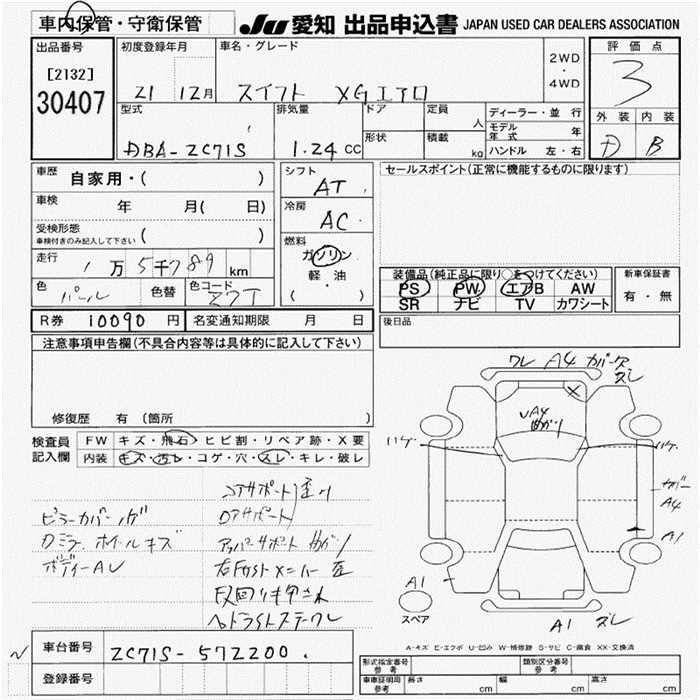 車内保管・守衛保管
JU 愛知 出品申込書 JAPAN USED CAR DEALERS ASSOCIATION
出品番号
[2132]
30407
初度登録年月
21 12月
車名・グレード
スイフト XGエアロ
2WD
・
4WD
評価点
3
外装 内装
D B
型式
DBA-ZC71S
排気量
1.24 cc
ドア
形状
定員
人
積載
kg
ディーラー・並行
モデル年式 年
ハンドル 左・右
車歴 自家用・( )
車検 年 月( 日)
受検形態
車検付きのみ記入して下さい ( )
走行 1万5千789 km
色 パール 色替 色コード Z7T
シフト
AT
冷房
AC
燃料
ガソリン
軽油
( )
セールスポイント(正常に機能するものに限ります)
装備品(純正品に限り○をつけてください)
PS PW エアB AW
SR ナビ TV カワシート
新車保証書
有・無
R券 10090 円 名変通知期限 月 日
後日品
注意事項申告欄(不具合内容等は具体的に記入して下さい)
修復歴 有 (箇所
検査員記入欄
FW キズ・飛石・ヒビ割・リペア跡・X要
内装 キズ・汚レ・コゲ・穴・スレ・キレ・破レ
ワレ A4 カバー欠
ズレ
UA4
めがり
X
ハゲ
ハゲ
カバー
A4
A1
A1
A1 ズレ
スペア
コアサポート歪り
ロアサポート
ピラーカバーハゲ
ロミラー ホイールキズ
アッパーサポート めがり
ボディーAU
ヘッドライトステーワレ
A-キズ E-エクボ U-凹み W-補修跡 S-サビ C-腐食 XX-交換済
車台番号 ZC71S-572200
登録番号
形式指定番号
参考
類別区分番号
参考
車庫証明用
参考
長さ cm
幅 cm
高さ cm